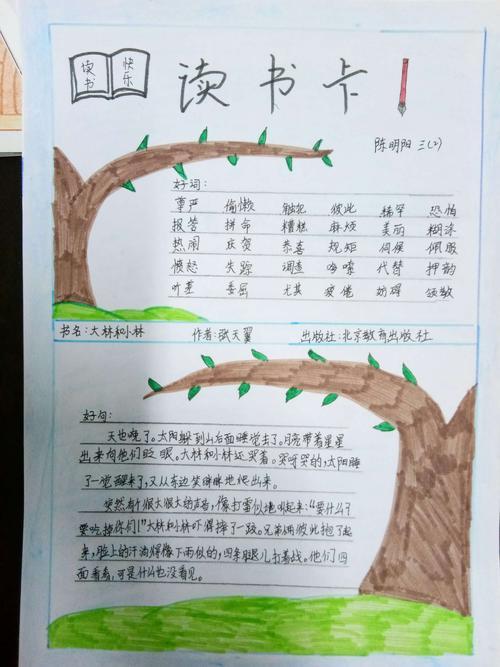 读书 快乐
读书卡
陈明阳 三(2)
好词:
尊严 偷懒 触犯 彼此 稀罕 恐怕
报答 拼命 糟糕 麻烦 美丽 糊涂
热闹 庆贺 恭喜 规矩 伺候 佩服
愤怒 失踪 调查 咕噜 代替 押韵
委屈 尤其 疲倦 妨碍 领教
书名:大林和小林 作者:张天翼 出版社:北京教育出版社
好句:
天也晚了。太阳躲到山后面睡觉去了。月亮带着星星
出来向他们眨眼。大林和小林还哭着。哭呀哭的,太阳睡
了一觉醒来了,又从东边笑眯眯地爬出来。
突然有个很大很大的声音,像打雷似地吼起来:“要什么?
要吃掉你们!”大林和小林吓得摔了一跤。兄弟俩彼此抱了起
来,脸上的汗油得像下雨似的,四条腿儿打着战。他们四
面看看,可是什么也没看见。